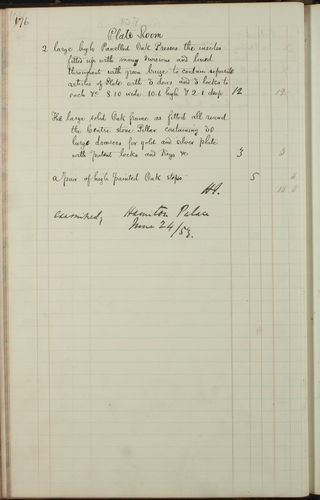 176
Plate Room
2 large high Panelled Oak Presses the insides
fitted up with many divisions and lined
throughout with green baize to contain separate
articles of Plate with 3 doors and 3 locks to
each &c 8.10 wide 10.6 high & 2.1 deep 12 12
The large solid Oak frame as fitted all round
the Centre stone Pillar containing 30
large drawers for gold and silver plate
with patent locks and keys &c 3 3
a pair of high painted Oak steps 5
HA.
examined, Hamilton Palace
June 24/59.